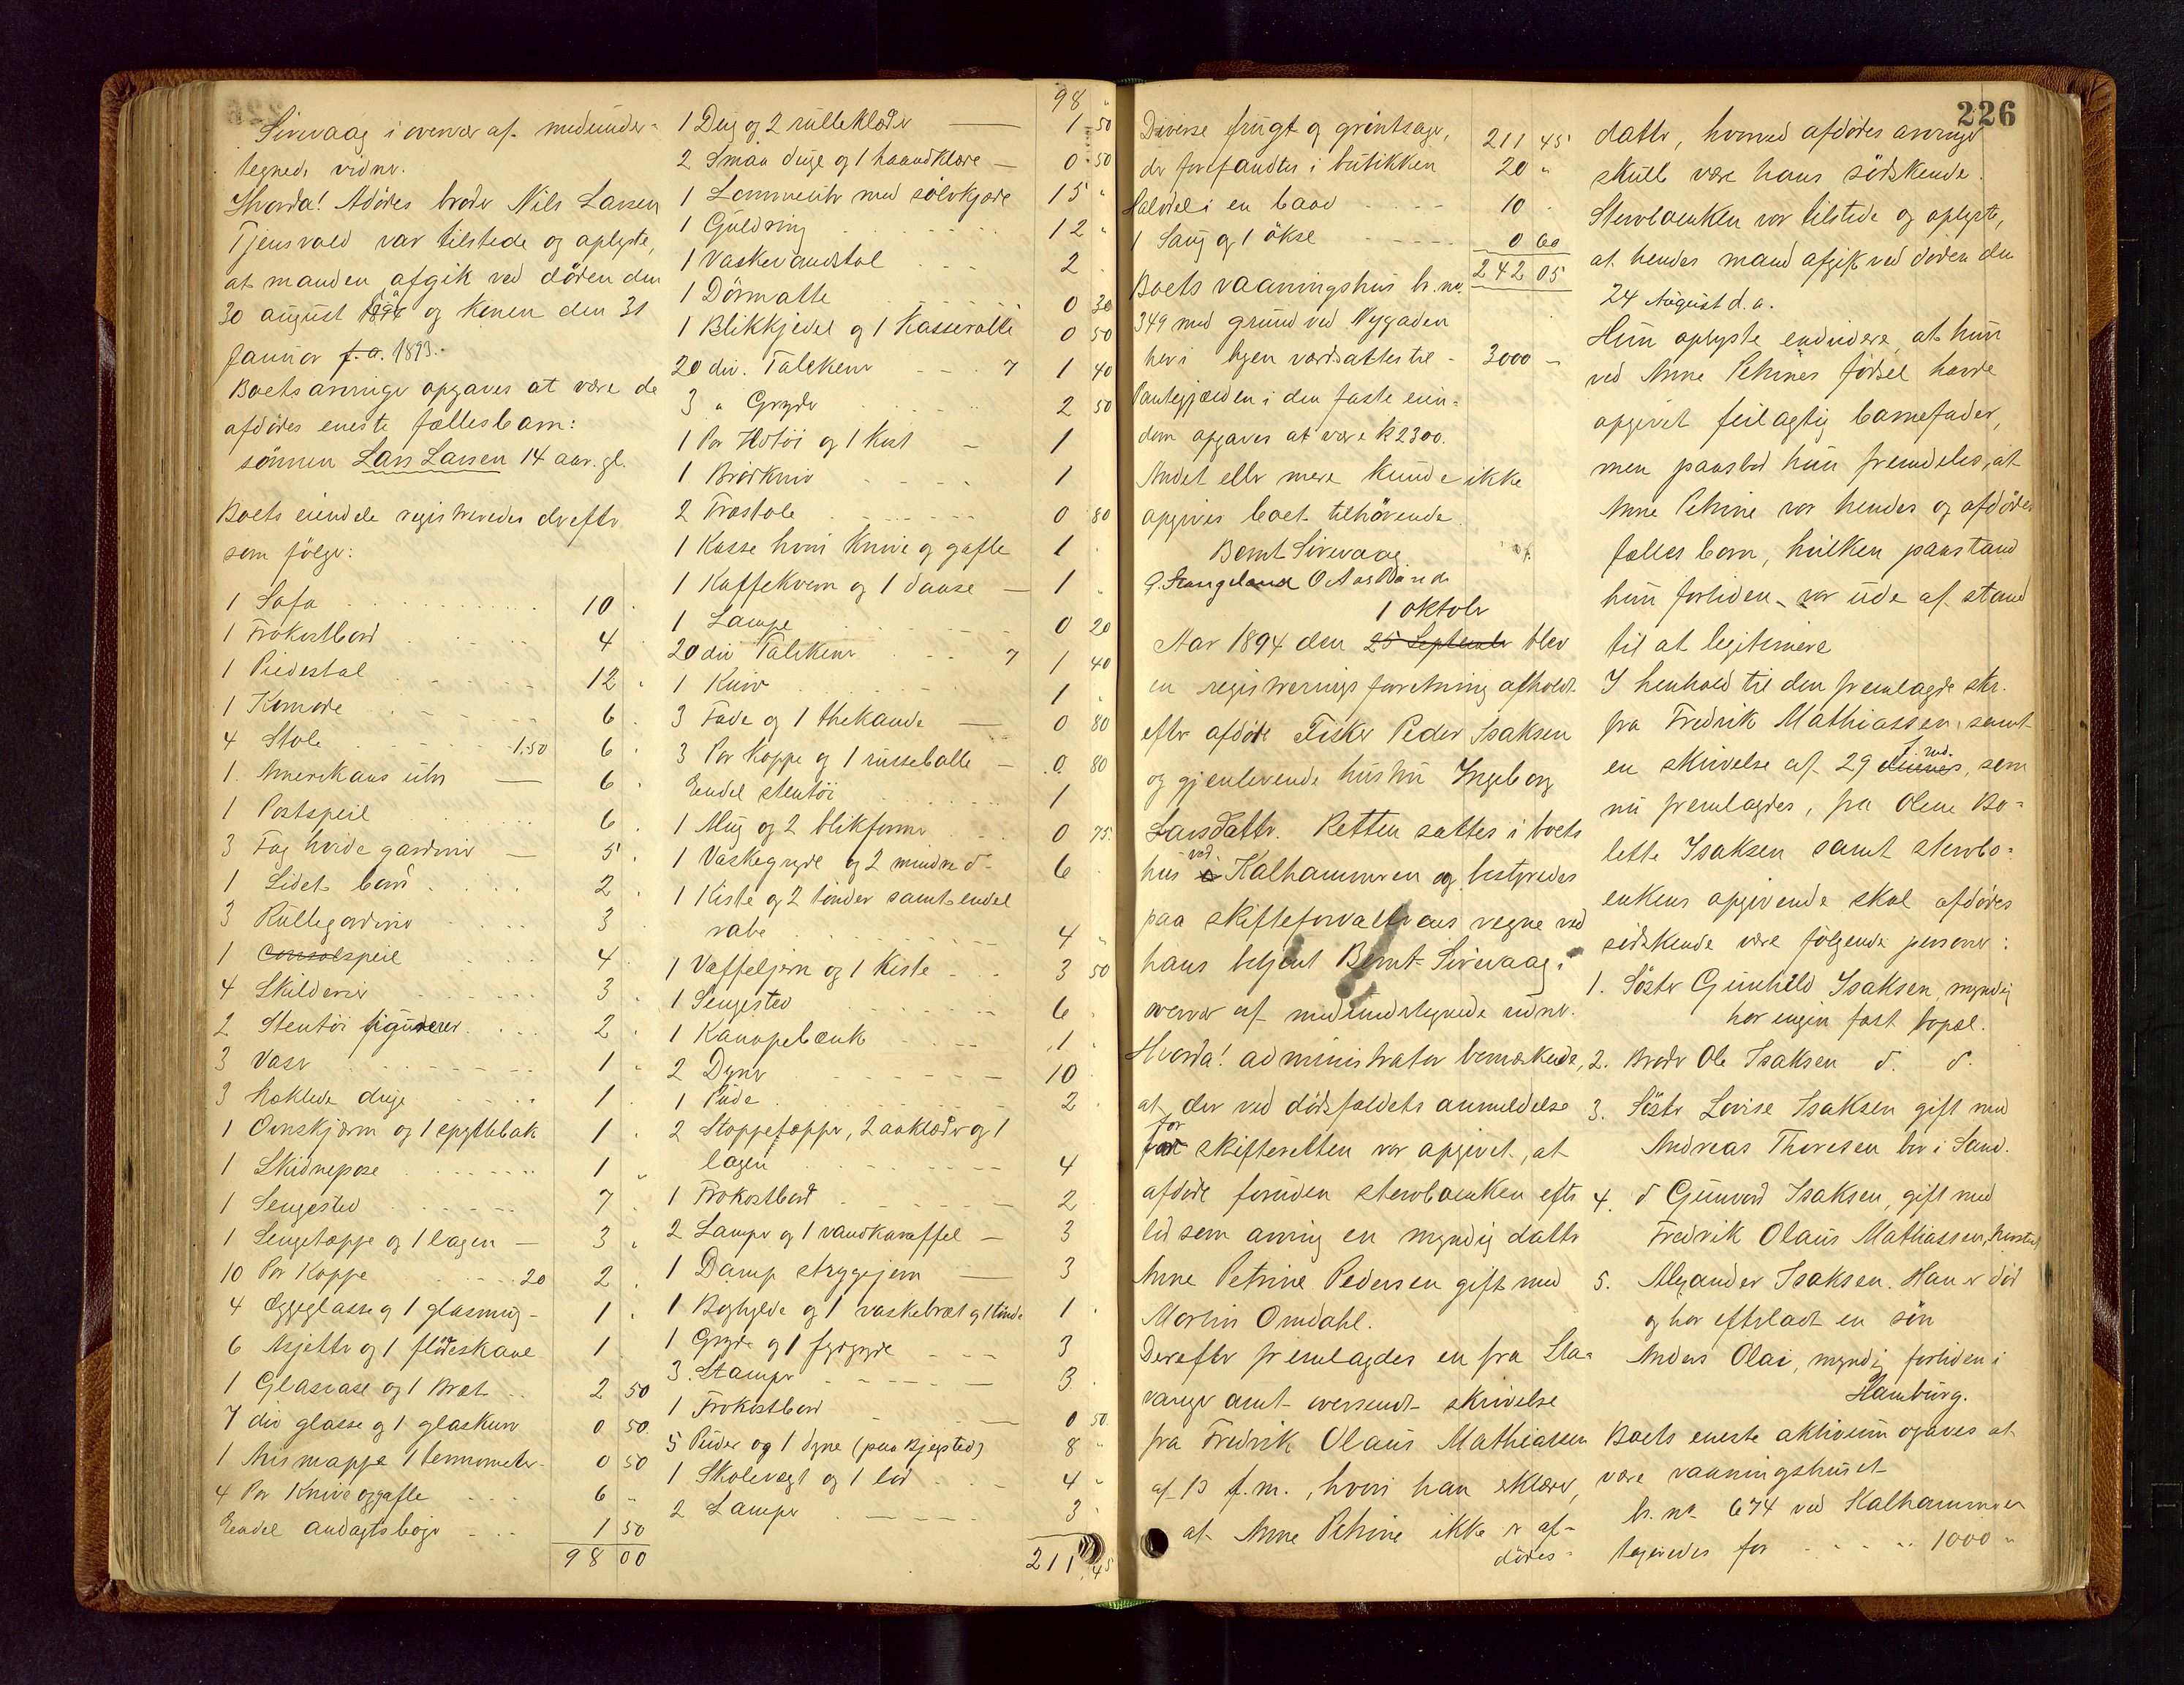 Sirevaag i overvær af medunder-
tegnede vidner.
Hvorda! Afdødes broder Nils Larsen
Tjensvold var tilstede og oplyste,
at manden afgik ved døden den
30 august og konen den 31
Januar f. a. 1893.
Boets arvinger opgaves at være de
afdødes eneste fællesbarn:
sønnen Lars Larsen 14 aar. gl.
Boets eiendele registreredes derefter
som følger:
1 Sofa 10
1 Frokostbord 4
1 Piedestal 12
1 Komode 6
4 Stole 1,50 6
1 Amerikans uhr 6
1 Postspeil 6
3 Fag hvide gardiner 5
1 Lidet bord 2
3 Rullegardiner 3
1 Consolspeil 4
4 Skilderier 3
2 Stentöi figurer 2
3 Vaser 1
3 Heklede duge 1
1 Ovnskjærm og 1 spyttebak 1
1 Skidnepose 1
1 Sengested 7
1 Sengetæppe og 1 lagen 3
10 Par Koppe 20 2
4 Æggeglasse og 1 glasmug 1
6 Asjetter og 1 flødeskaal 1
1 Glasvase og 1 Bræt 2 50
7 div glasse og 1 glaskurv 0 50
1 Avismappe 1 termometer 0 50
4 Par Knive og gafle 6
Endel andagtsbøger 1 50
98 00
98
1 Dug og 2 rulleklæder 1 50
2 Smaa duge og 1 haandklæde 0 50
1 Lommeuhr med sølvkjæde 15
1 Guldring 12
1 Vaskevandstol 2
1 Dørmatte 0 30
1 Blikkjedel og 1 Kasserolle 0 50
20 div. Talekener 7 1 40
3 " Gryder 2 50
1 Par Ildtøi og 1 Kost 1
1 Brødkniv 1
2 Træstole 0 80
1 Kasse hvori Knive og gafle 1
1 Kaffekvern og 1 daase 1
1 Lampe 0 20
20 div Talekener 7 1 40
1 Kniv 1
3 Fade og 1 thekande 0 80
3 Par Koppe og 1 russebolle 0 80
Endel stentöi 1
1 Mug og 2 blikformer 0 75
1 Vaskegryde og 2 mindre do 6
1 Kiste og 2 tønder samt endel
rabe 4
1 Vaffeljern og 1 Kiste 3 50
1 Sengested 6
1 Kanapebænk 1
2 Dyner 10
1 Pude 2
2 Stoppetæpper, 2 aaklæder og 1
lagen 4
1 Frokostbord 2
2 Lamper og 1 vandkaraffel 3
1 Damp strygejern 3
1 Boghylde og 1 vaskebræt og 1 tønde 1
1 Gryde og 1 fyrgryde 3
3 Stamper 3
1 Frokostbord 0 50
5 Puder og 1 dyne (paa Bjergsted) 8
1 Skolevægt og 1 lod 4
2 Lamper 3
211 45
226
Diverse frugt og grøntsager, 211 45
der forefandtes i butikken 20
Halvdel i en baad 10
1 Saug og 1 økse 0 60
242 05
Boets vaaningshus br. no.
349 med grund ved Nygaden
her i byen værdsattes til 3000
Pantegjælden i den faste eien-
dom opgaves at være K 2300.
Andet eller mere kunde ikke
opgives boet tilhørende.
Bernt Sirevaag
G. Haugeland O Aasland
1 oktober
Aar 1894 den 25 September blev
en registrerings forretning afholdt
efter afdøde Fisker Peder Isaksen
og gjenlevende hustru Ingeborg
Larsdatter. Retten sattes i boets
hus ved Kalhammeren og bestyredes
paa skifteforvalterens vegne ved
hans betjent Bernt Sirevaag i
overvær af medundertegnede vidner.
Hvorda! administrator bemærkede,
at der ved dødsfaldets anmeldelse
for skifteretten var opgivet, at
afdøde foruden sterboenken efter
lod som arving en myndig datter
Anne Petrine Pedersen gift med
Martin Omdahl.
Derefter fremlagdes en fra Sta-
vanger amt oversendt skrivelse
fra Fredrik Olaus Mathiassen
af 13 f.m., hvori han erklærer,
at Anne Petrine ikke er af-
dødes
datter, hvorved afdødes arvinger
skulle være hans sødskende.
Sterboenken var tilstede og oplyste,
at hendes mand afgik ved døden den
24 August d. a.
Hun oplyste endvidere, at hun
ved Anne Petrines fødsel havde
opgivet feilagtig barnefader,
men paastod hun fremdeles, at
Anne Petrine var hendes og afdødes
fælles barn, hvilken paastand
hun fortiden var ude af stand
til at legitimere
I henhold til den fremlagde skr.
fra Fredrik Mathiassen samt
en skrivelse af 29 f. md., som
nu fremlagdes, fra Olene Bo-
lette Isaksen samt sterbo-
enkens opgivende skal afdødes
sødskende være følgende personer:
1. Søster Gunhild Isaksen, myndig
har ingen fast bopæl.
2. Broder Ole Isaksen do. do.
3. Søster Lovise Isaksen gift med
Andreas Thoresen bor i Sand.
4. do Gunvord Isaksen, gift med
Fredrik Olaus Mathiassen,
5. Alexander Isaksen. Han er død
og har efterladt en søn
Anders Olai, myndig fortiden i
Hamburg.
Boets eneste aktivum opgaves at
være vaaningshuset
br. no 674 ved Kalhammeren
taxeredes for 1000